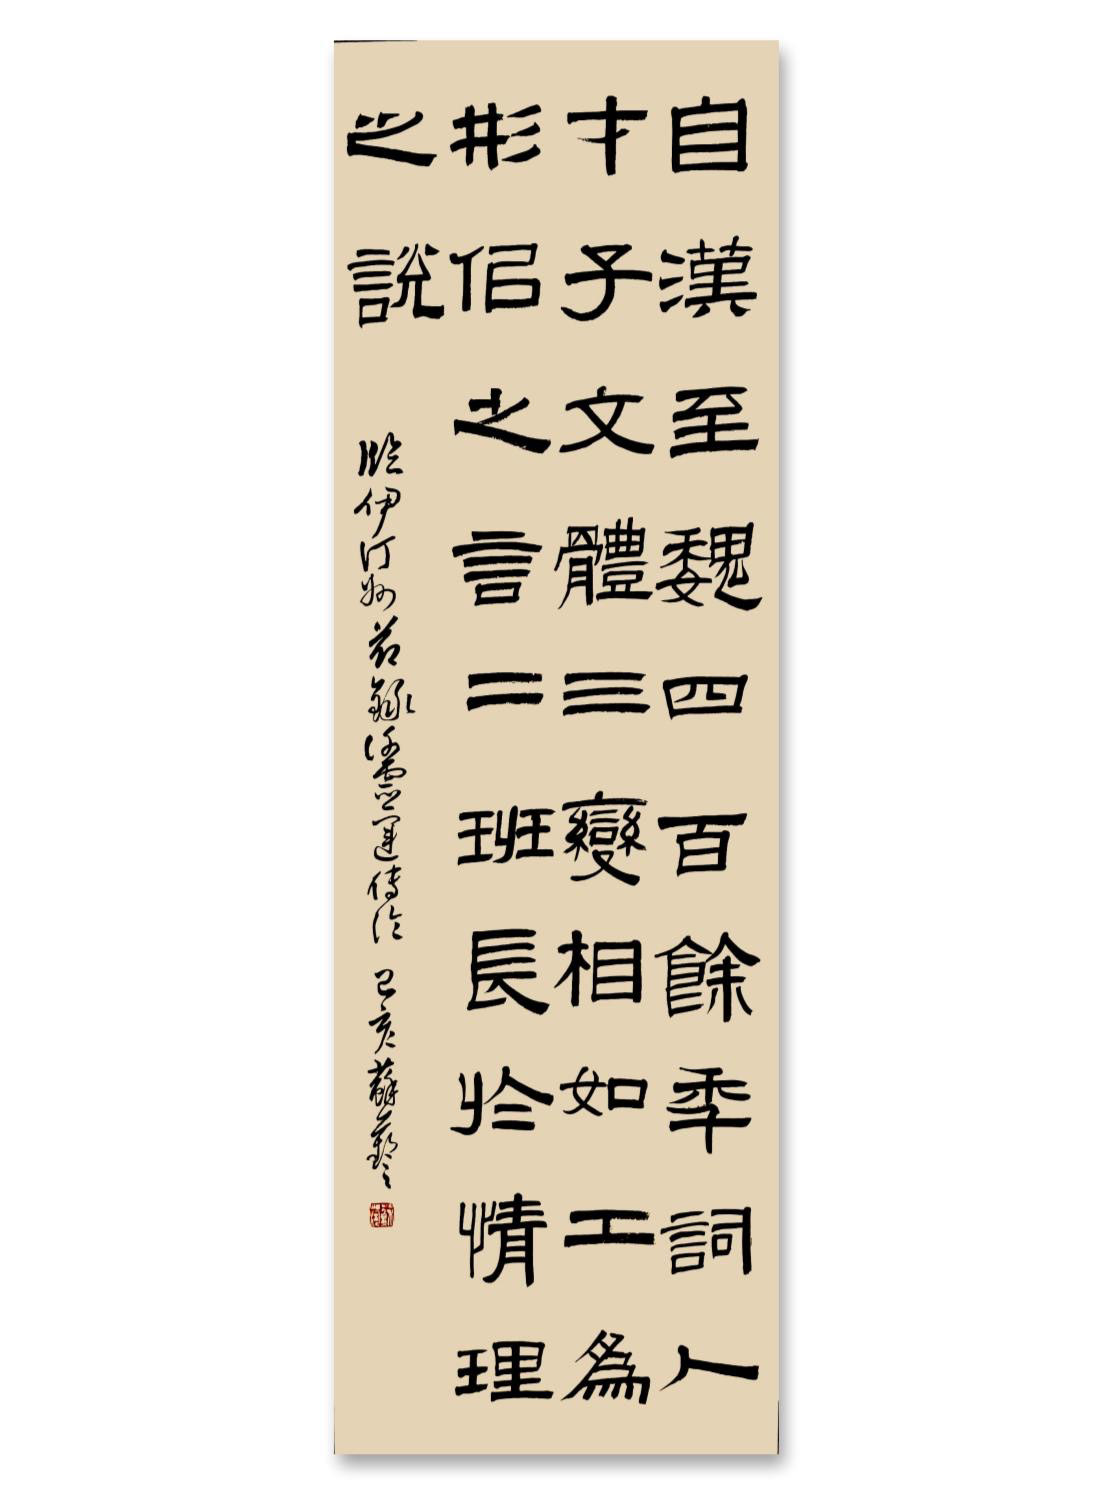 自漢至魏四百餘年詞人
才子文體三變相如工為
形侣之言二班長於情理
之說
臨伊汀州節錄謝靈運傳論 己亥 蘇